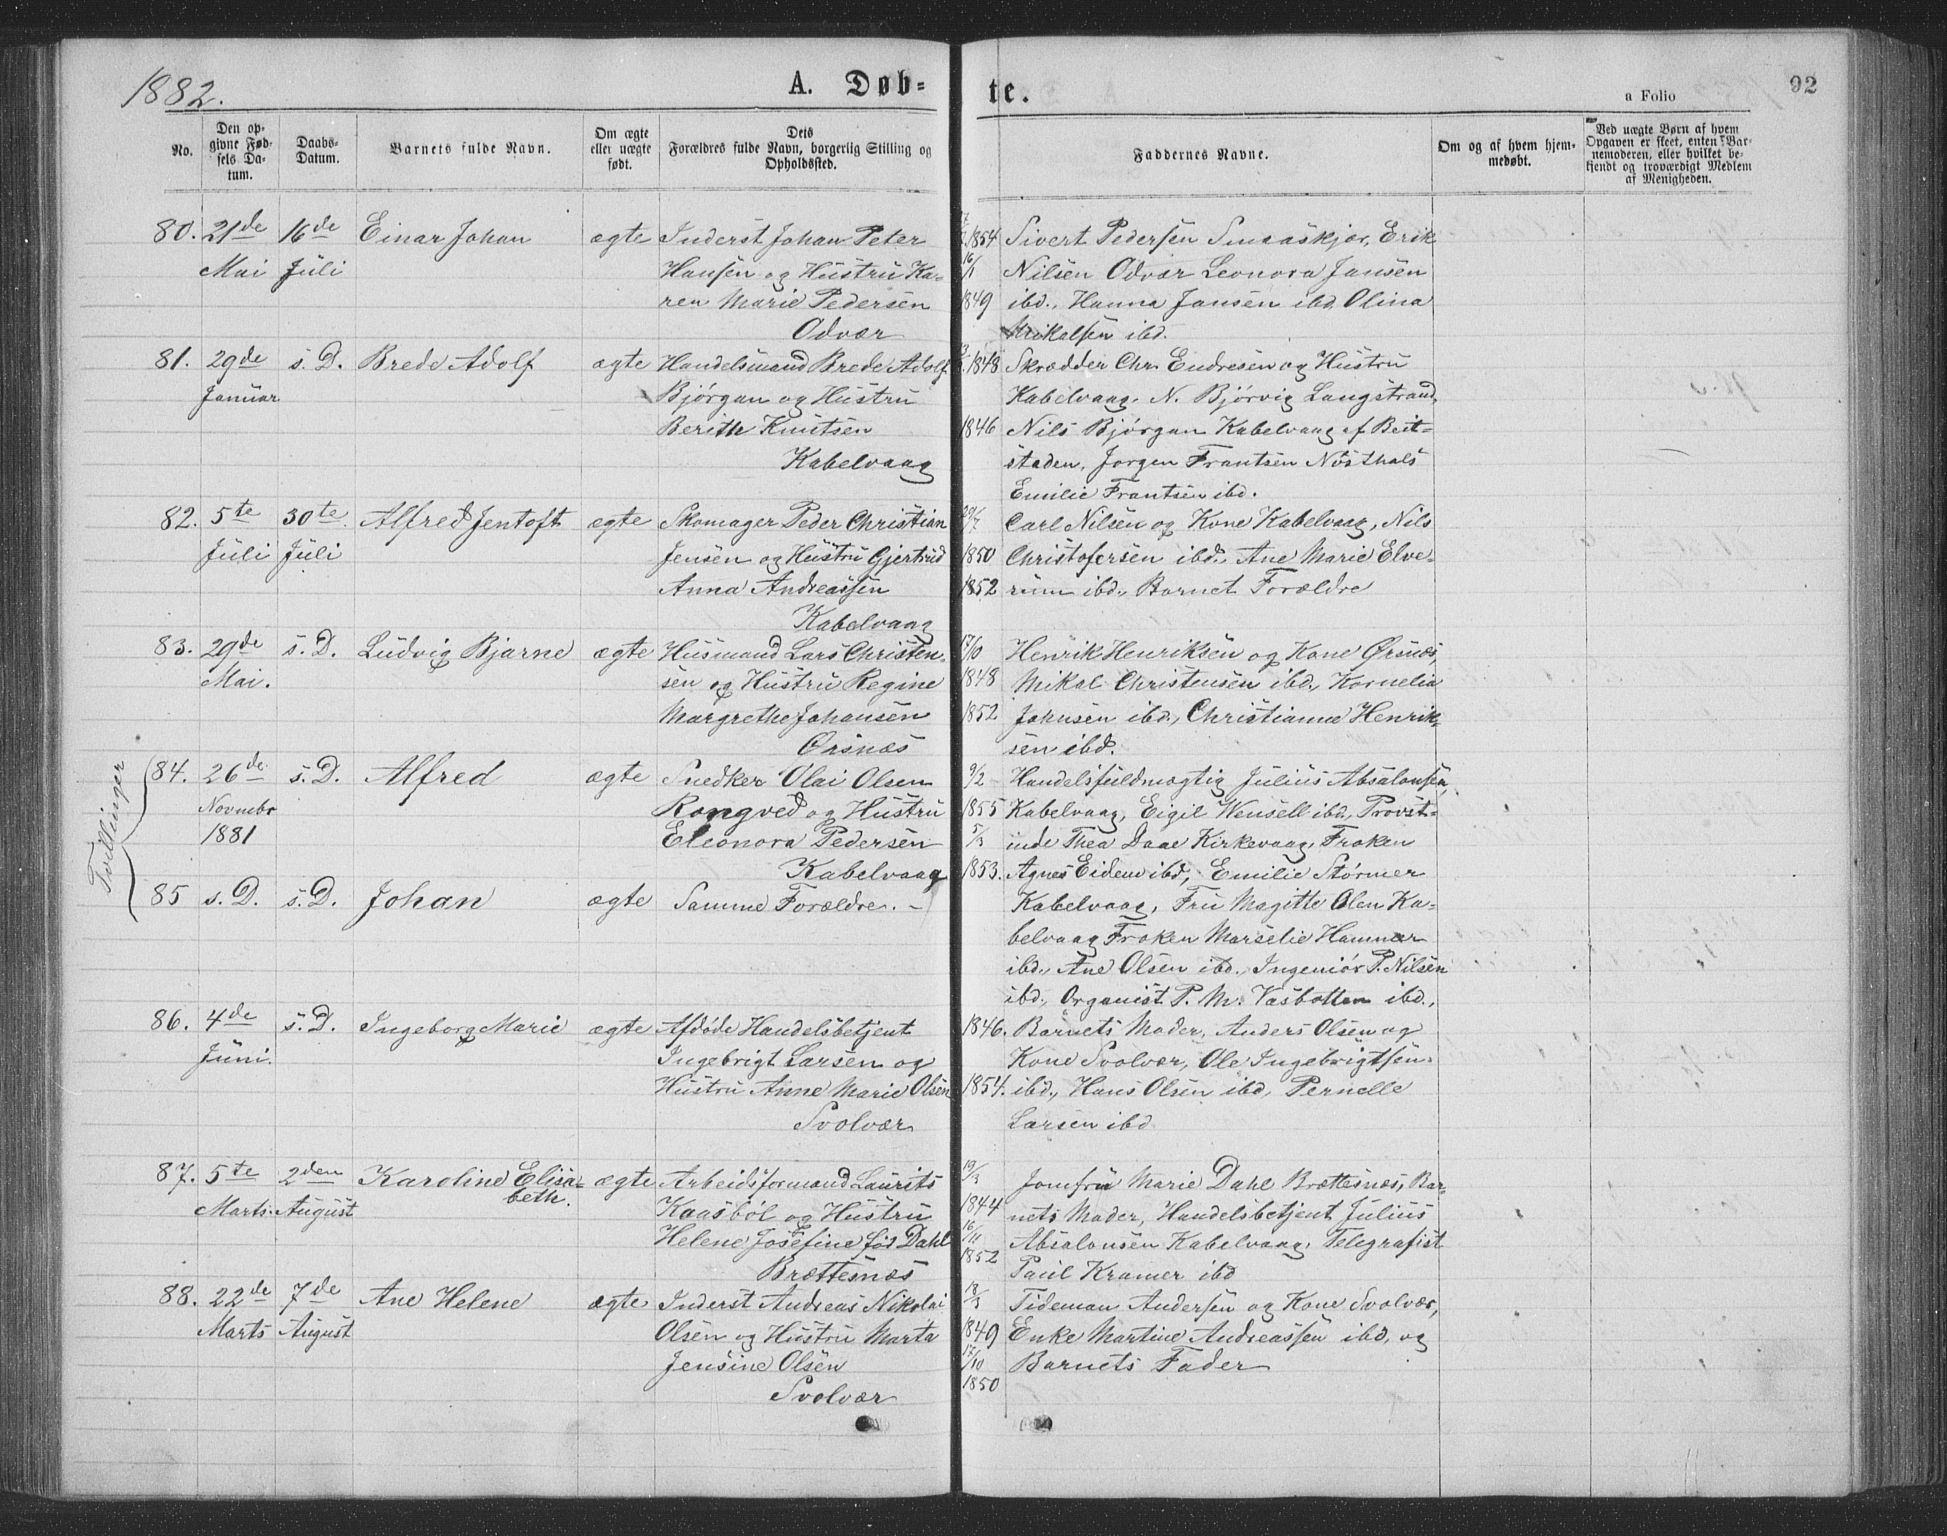 1882.
A. Døb-
te.
a Folio
92
No.
Den op-
givne Fød-
sels Da-
tum.
Daabs-
Datum.
Barnets fulde Navn.
Om ægte
eller uægte
født.
Dets
Forældres fulde Navn, borgerlig Stilling og
Opholdssted.
Faddernes Navne.
Om og af hvem hjem-
medøbt.
Ved uægte Børn af hvem
Opgaven er skeet, enten Bar-
nemoderen, eller hvilket be-
kjendt og troværdigt Medlem
af Menigheden.
80. 21de 16de Einar Johan ægte Inderst Johan Peter
Mai Juli Hansen og Hustru Ka-
ren Marie Pedersen
Odvær
1854 Sivert Pedersen Smaaskjær, Erik
Nilsen Odvær Leonora Jansen
1849 ibd., Hanna Jansen ibd, Olina
Mikalsen ibd.
81. 29de s. D. Brede Adolf ægte Handelsmand Brede Adolf
Januar Bjørgan og Hustru
Berith Knutsen
Kabelvaag
1848 Skrædder Chr. Endresen og Hustru
Kabelvaag. N. Bjørvig Langstrand,
1846 Nils Bjørgan Kabelvaag af Beit-
staden, Jørgen Frantsen Nøsthals
Emilie Frantsen ibd.
82. 5te 30te Alfred Jentoft ægte Skomager Peder Christian
Juli Juli Jensen og Hustru Gjertrud
Anna Andreassen
Kabelvaag
29/7 Carl Nilsen og Kone Kabelvaag, Nils
1850 Christofersen ibd., Ane Marie Elve-
1852 rum ibd., Barnet Forældre
83. 29de s. D. Ludvig Bjarne ægte Husmand Lars Christen-
Mai. sen og Hustru Regine
Margrethe Johansen
Ørsnæs
Henrik Henriksen og Kone Ørsnæs,
1848 Mikal Christensen ibd., Kornelia
1852 Johnsen ibd., Christianna Henrik-
sen ibd.
Tvillinger
84. 26de s. D. Alfred ægte Snedker Olai Olsen
Novmbr Rongved og Hustru
1881 Eleonora Pedersen
Kabelvaag
9/2 Handelsfuldmægtig Julius Absalonsen,
1855 Kabelvaag, Eigil Wensell ibd, Provst-
5/3 inde Thea Daae Kirkevaag, Frøken
1853. Agnes Eidem ibd, Emilie Størmer
85 s. D. s. D. Johan ægte Samme Forældre. -
Kabelvaag, Fru Magitte Olen Ka-
belvaag Frøken Marselie Hammer
ibd., Ane Olsen ibd., Ingeniør P. Nilsen
ibd., Organist P. M. Vasbotten ibd.,
86. 4de s. D. Ingeborg Marie ægte Afdøde Handelsbetjent
Juni. Ingebrigt Larsen og
Hustru Anne Marie Olsen
Svolvær
1846. Barnets Moder, Anders Olsen og
Kone Svolvær, Ole Ingebrigtsen
1854. ibd., Hans Olsen ibd, Pernelle
Larsen ibd
87. 5te 2den Karoline Elisa- ægte Arbeidsformand Laurits
Marts. August beth. Kaasbøl og Hustru
Helene Josefine fød Dahl
Brættesnæs
19/3 Jomfru Marie Dahl Brættesnæs, Bar-
1844 nets Moder, Handelsbetjent Julius
16/11 Absalonsen Kabelvaag, Telegrafist
1852 Paul Kramer ibd
88. 22de 7de Ane Helene ægte Inderst Andreas Nikolai
Marts August Olsen og Hustru Marta
Jensine Olsen
Svolvær
18/3 Tideman Andersen og Kone Svolvær,
1849 Enke Martine Andreassen ibd, og
17/10 Barnets Fader
1850